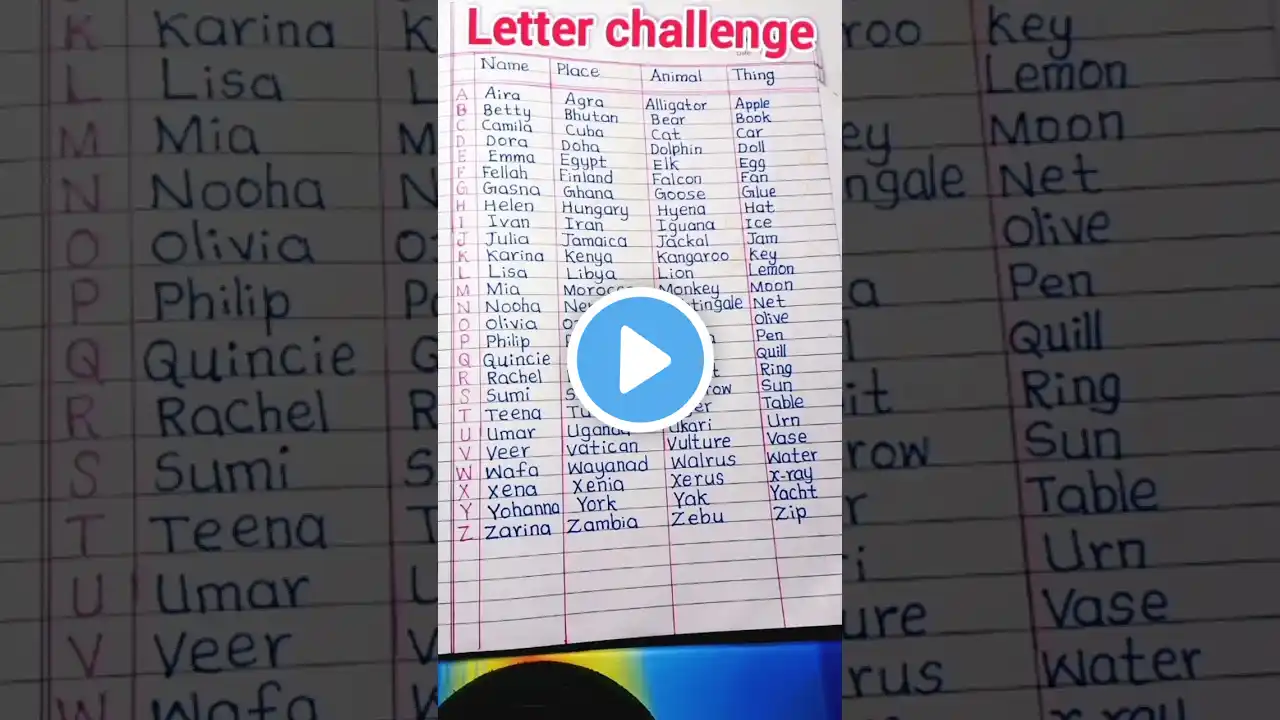 Letter challenge
Name Place Animal Thing
A Aira Agra Alligator Apple
B Betty Bhutan Bear Book
C Camila Cuba Cat Car
D Dora Doha Dolphin Doll
E Emma Egypt Elk Egg
F Fellah Finland Falcon Fan
G Gasna Ghana Goose Glue
H Helen Hungary Hyena Hat
I Ivan Iran Iguana Ice
J Julia Jamaica Jackal Jam
K Karina Kenya Kangaroo Key
L Lisa Libya Lion Lemon
M Mia Morocco Monkey Moon
N Nooha Nightingale Net
O Olivia Olive
P Philip Pen
Q Quincie Quill
R Rachel Ring
S Sumi Sun
T Teena Table
U Umar Uganda Ukari Urn
V Veer Vatican Vulture Vase
W Wafa Wayanad Walrus Water
X Xena Xenia Xerus X-ray
Y Yohanna York Yak Yacht
Z Zarina Zambia Zebu Zip
K Karina K
L Lisa L
M Mia M
N Nooha N
O Olivia O
P Philip P
Q Quincie
R Rachel R
S Sumi S
T Teena T
U Umar U
V Veer V
W Wafa
roo Key
Lemon
ey Moon
ngale Net
Olive
a Pen
Quill
it Ring
row Sun
r Table
i Urn
ure Vase
rus Water
x-ray